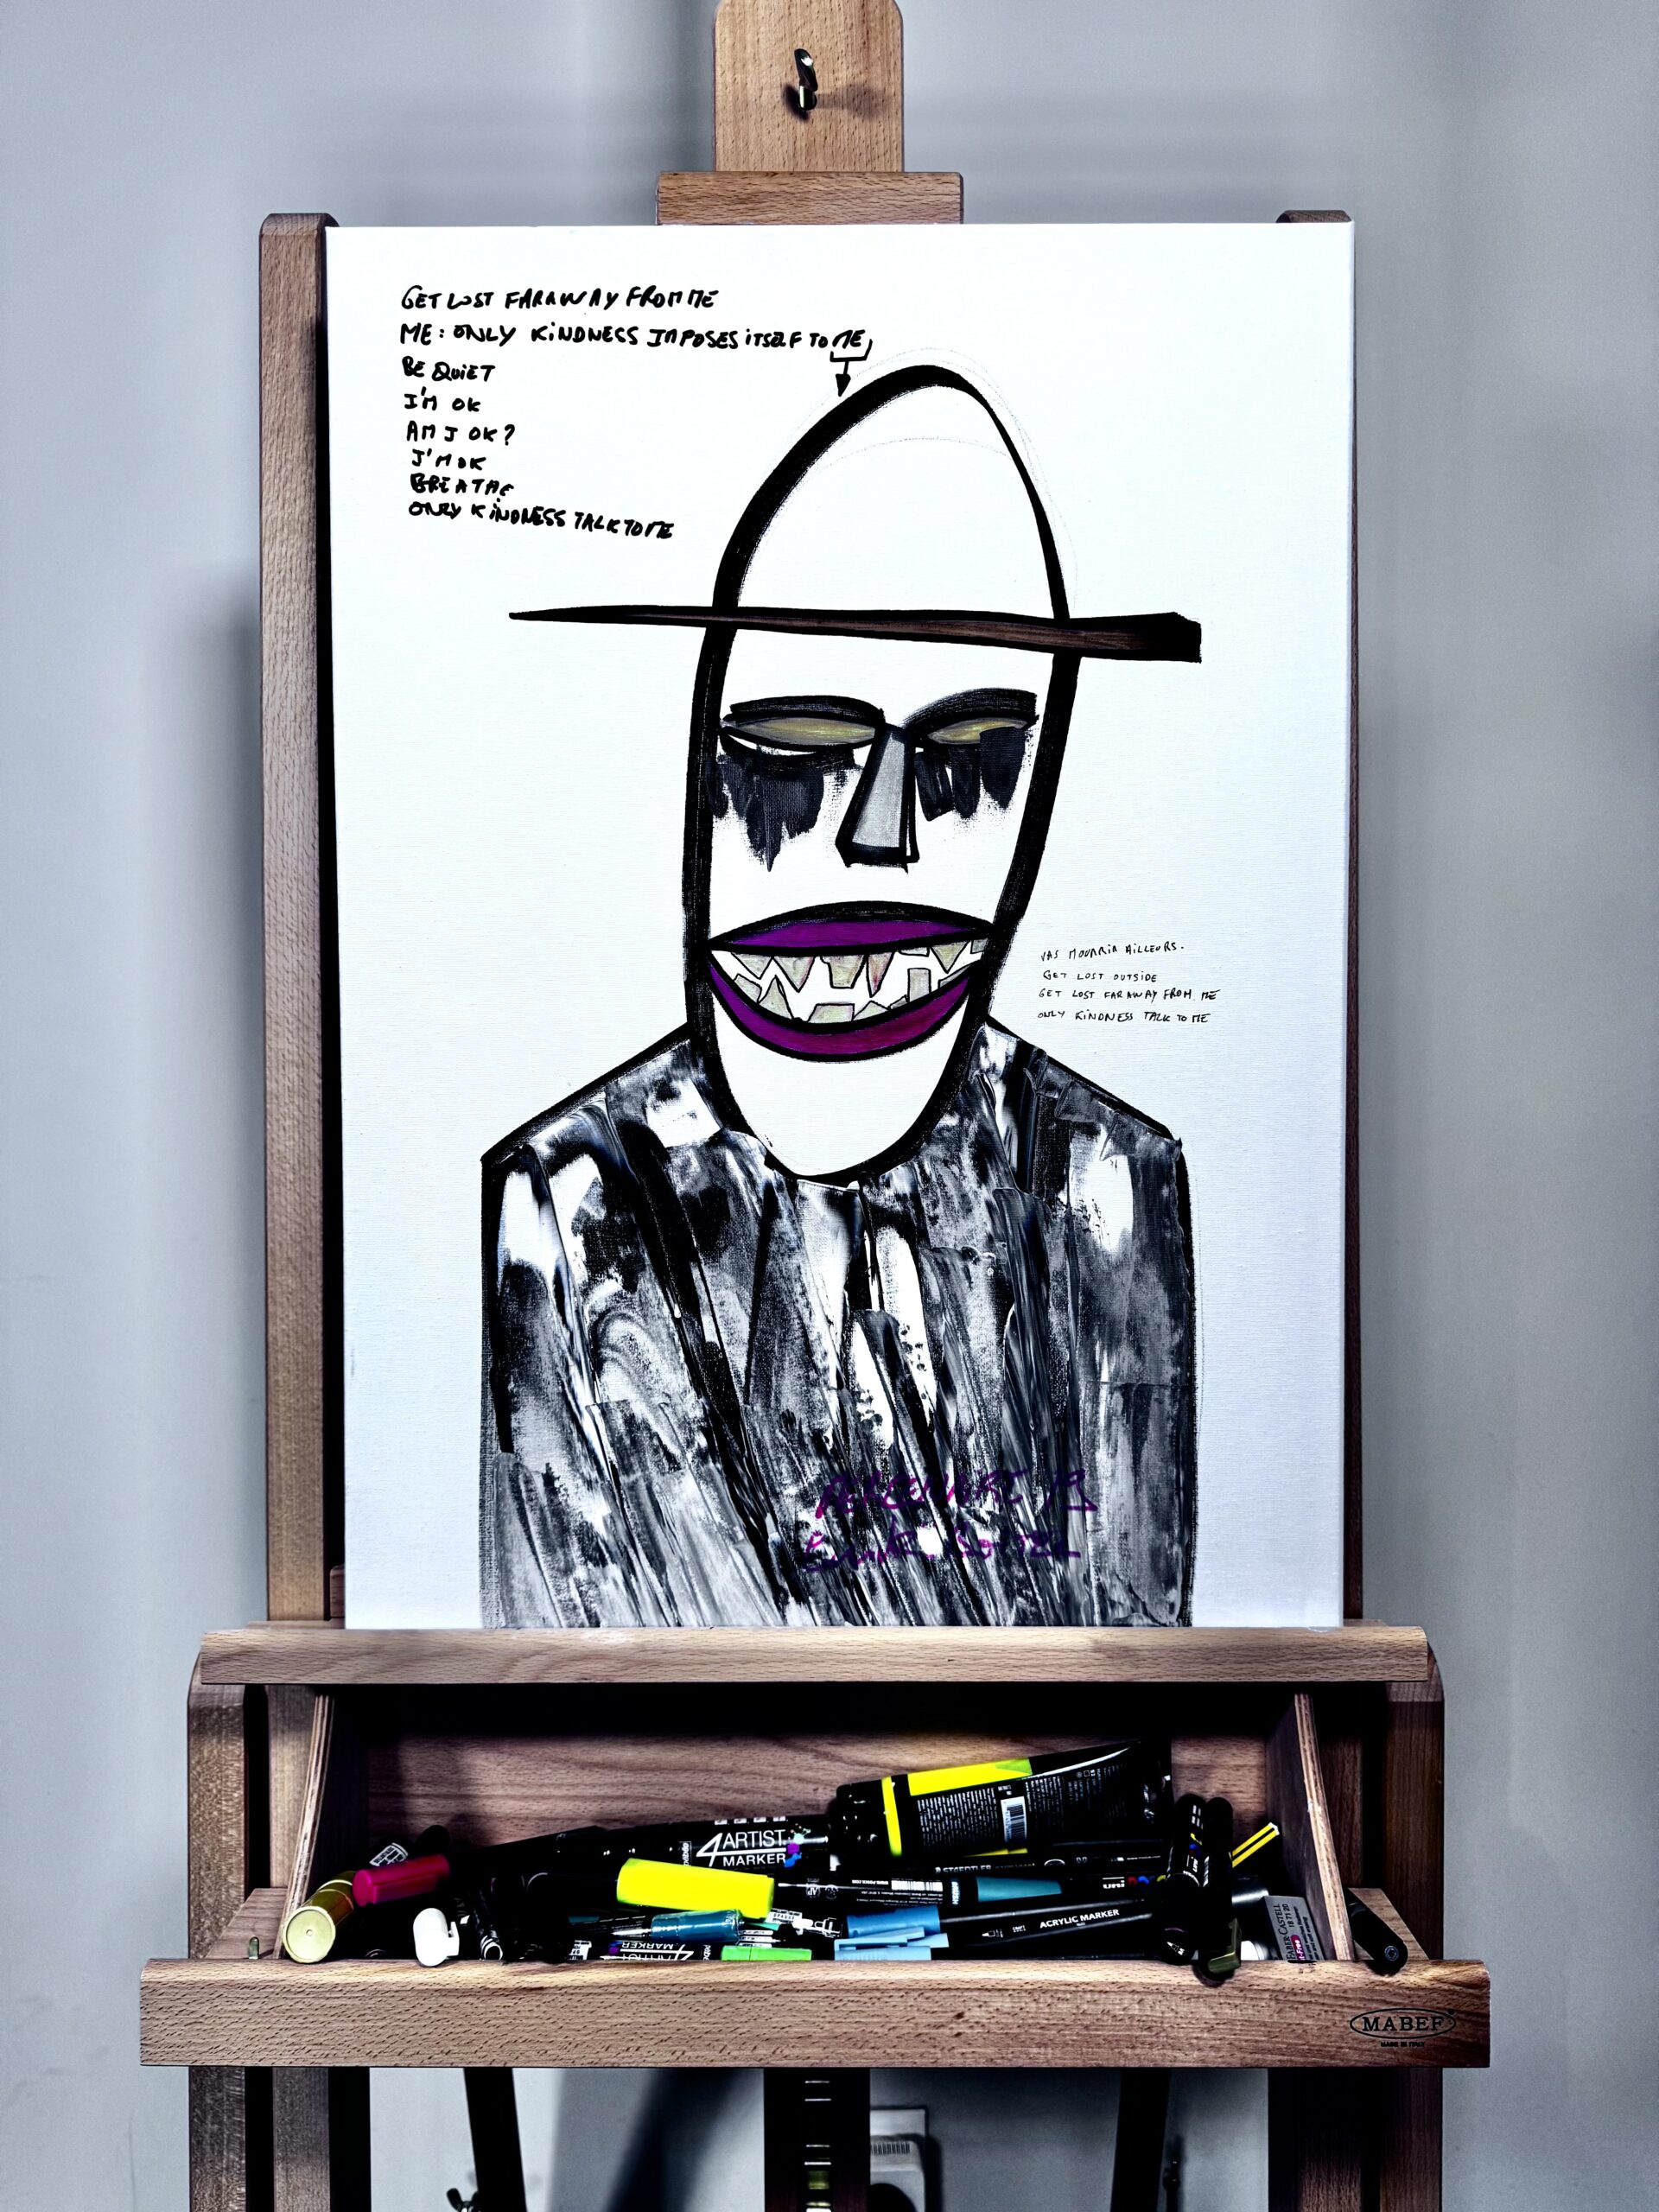 GET LOST FARAWAY FROM ME
ME: ONLY KINDNESS IMPOSES ITSELF TO ME
BE QUIET
I'M OK
AM I OK?
I'M OK
BREATHE
ONLY KINDNESS TALK TO ME
VAS MOURRIR AILLEURS.
GET LOST OUTSIDE
GET LOST FARAWAY FROM ME
ONLY KINDNESS TALK TO ME
4ARTIST
MARKER
STAEDTLER
ACRYLIC MARKER
MARKER
FABER-CASTELL
18 71 20
MABEF
MADE IN ITALY